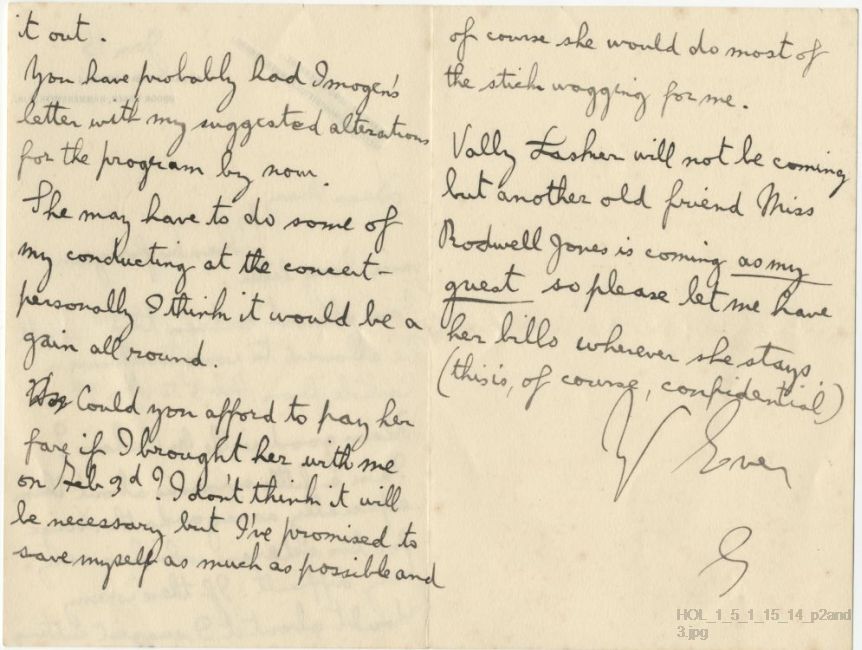 it out.
You have probably had Imogen's
letter with my suggested alterations
for the program by now.
She may have to do some of
my conducting at the concert -
personally I think it would be a
gain all round.
Could you afford to pay her
fare if I brought her with me
on Feb 3d? I don't think it will
be necessary but I've promised to
save myself as much as possible and
of course she would do most of
the stick wagging for me.
Vally Lasker will not be coming
but another old friend Miss
Rodwell Jones is coming as my
guest so please let me have
her bills wherever she stays.
(this is, of course, confidential)
Y Ever
G
HOL_1_5_1_15_14_p2and
3.jpg